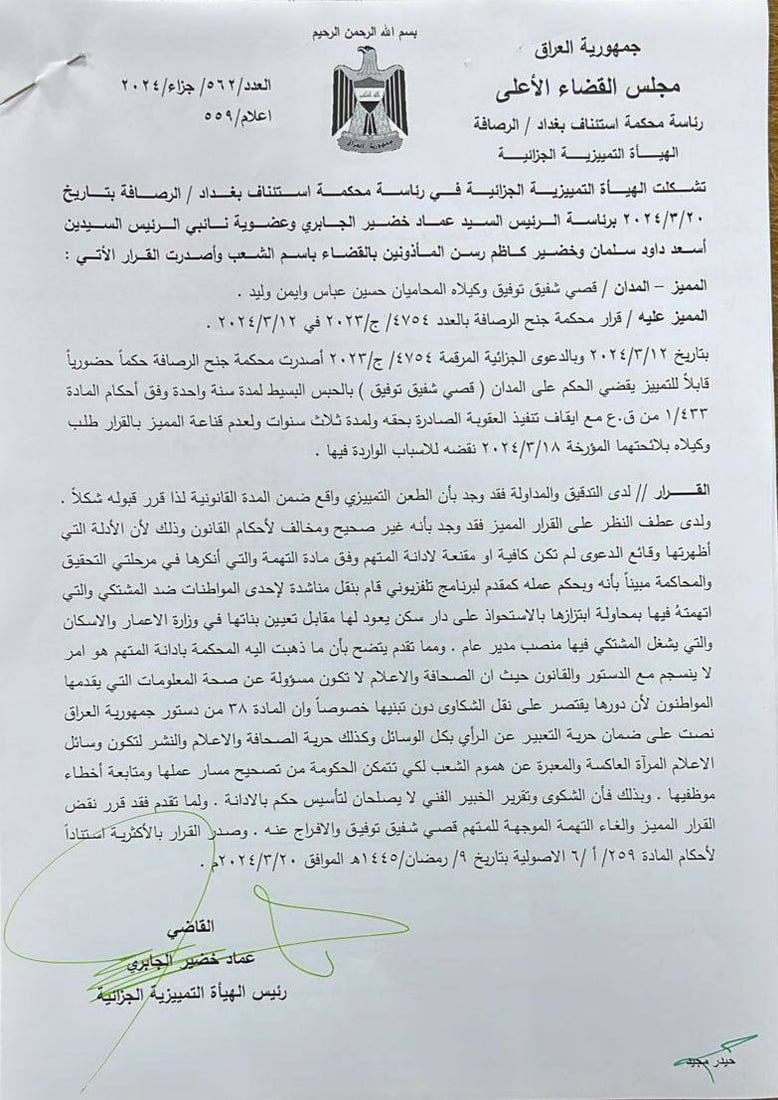 بسم الله الرحمن الرحيم
جمهورية العراق
مجلس القضاء الأعلى
رئاسة محكمة استئناف بغداد / الرصافة
الهيـــأة التمييزيـة الجزائيـــة
العدد/٥٦٢/ جزاء/٢٠٢٤
اعلام/٥٥٩
جمهورية العراق
تشكلت الهيأة التمييزية الجزائية في رئاسة محكمة استئناف بغداد / الرصافة بتاريخ
٢٠٢٤/٣/٢٠ برئاسة الرئيس السيد عماد خضير الجابري وعضوية نائبي الرئيس السيدين
أسعد داود سلمان وخضير كاظم رسن المأذونين بالقضاء باسم الشعب وأصدرت القرار الأتي :
المميز – المدان / قصي شفيق توفيق وكيلاه المحاميان حسين عباس وايمن وليد .
المميز عليه / قرار محكمة جنح الرصافة بالعدد ٤٧٥٤/ ج/٢٠٢٣ في ٢٠٢٤/٣/١٢ .
بتاريخ ٢٠٢٤/٣/١٢ وبالدعوى الجزائية المرقمة ٤٧٥٤/ ج/٢٠٢٣ أصدرت محكمة جنح الرصافة حكماً حضورياً
قابلاً للتمييز يقضي الحكم على المدان ( قصي شفيق توفيق ) بالحبس البسيط لمدة سنة واحدة وفق أحكام المادة
١/٤٣٣ من ق.ع مع ايقاف تنفيذ العقوبة الصادرة بحقه ولمدة ثلاث سنوات ولعدم قناعة المميز بالقرار طلب
وكيلاه بلائحتهما المؤرخة ٢٠٢٤/٣/١٨ نقضه للاسباب الواردة فيها .
القـــــرار // لدى التدقيق والمداولة فقد وجد بأن الطعن التمييزي واقع ضمن المدة القانونية لذا قرر قبوله شكلاً .
ولدى عطف النظر على القرار المميز فقد وجد بأنه غير صحيح ومخالف لأحكام القانون وذلك لأن الأدلة التي
أظهرتها وقائع الدعوى لم تكن كافية او مقنعة لادانة المتهم وفق مادة التهمة والتي أنكرها في مرحلتي التحقيق
والمحاكمة مبيناً بأنه وبحكم عمله كمقدم لبرنامج تلفزيوني قام بنقل مناشدة لإحدى المواطنات ضد المشتكي والتي
اتهمتهُ فيها بمحاولة ابتزازها بالاستحواذ على دار سكن يعود لها مقابل تعيين بناتها في وزارة الاعمار والاسكان
والتي يشغل المشتكي فيها منصب مدير عام . ومما تقدم يتضح بأن ما ذهبت اليه المحكمة بادانة المتهم هو امر
لا ينسجم مع الدستور والقانون حيث ان الصحافة والاعلام لا تكون مسؤولة عن صحة المعلومات التي يقدمها
المواطنون لأن دورها يقتصر على نقل الشكاوى دون تبنيها خصوصاً وان المادة ٣٨ من دستور جمهورية العراق
نصت على ضمان حرية التعبير عن الرأي بكل الوسائل وكذلك حرية الصحافة والاعلام والنشر لتكون وسائل
الاعلام المرآة العاكسة والمعبرة عن هموم الشعب لكي تتمكن الحكومة من تصحيح مسار عملها ومتابعة أخطاء
موظفيها . وبذلك فأن الشكوى وتقرير الخبير الفني لا يصلحان لتأسيس حكم بالادانة . ولما تقدم فقد قرر نقض
القرار المميز والغاء التهمة الموجهة للمتهم قصي شفيق توفيق والافراج عنه . وصدر القرار بالأكثرية استناداً
لأحكام المادة ٢٥٩/ أ /٦ الاصولية بتاريخ ٩/ رمضان/١٤٤٥هـ الموافق ٢٠٢٤/٣/٢٠م .
القاضي
عماد خضير الجابري
رئيس الهيأة التمييزية الجزائية
حيدر مجيد